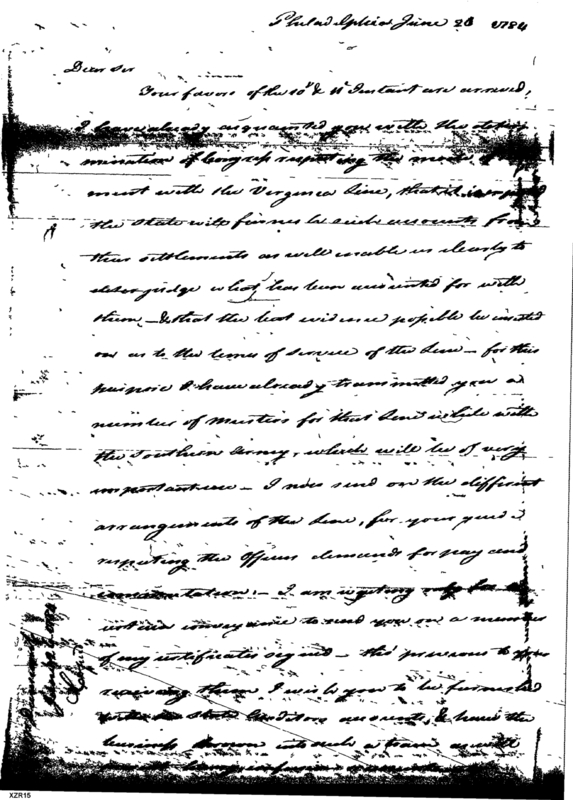 Philadelphia June 28 1784
Dear Sir
Your favors of the 10th & 11th Instant are arrived,
I have already acquainted you with the deter-
mination of Congress respecting the mode of
ment with the Virginia Line, that it is
the State will furnish such accounts from
their settlements as will enable us clearly to
judge what has been accounted for with
them — & that the best evidence possible be insisted
on as to the times of service of the Line — for this
purpose I have already transmitted you a
number of Musters for that Line while with
the Southern Army, which will be of very
important use — I now send on the different
arrangements of the Line, for your guid
respecting the Officers demands for pay and
commutation. — I am waiting only for a
conveyance to send you on a number
of my certificates signed — this previous to your
receiving them, I wish you to be furnished
with the State Auditors accounts, & have the
business thrown into such a train as will